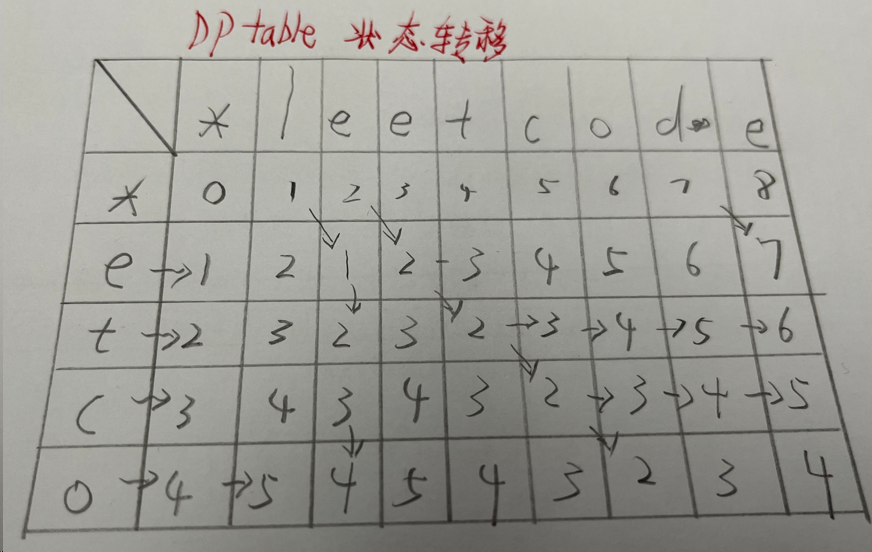 DP table 状态转移
* l e e t c o d e
* 0 1 2 3 4 5 6 7 8
e → 1 2 1 2 - 3 4 5 6 7
t → 2 3 2 3 2 → 3 → 4 → 5 → 6
C → 3 4 3 4 3 2 → 3 → 4 → 5
o → 4 → 5 4 5 4 3 2 3 4